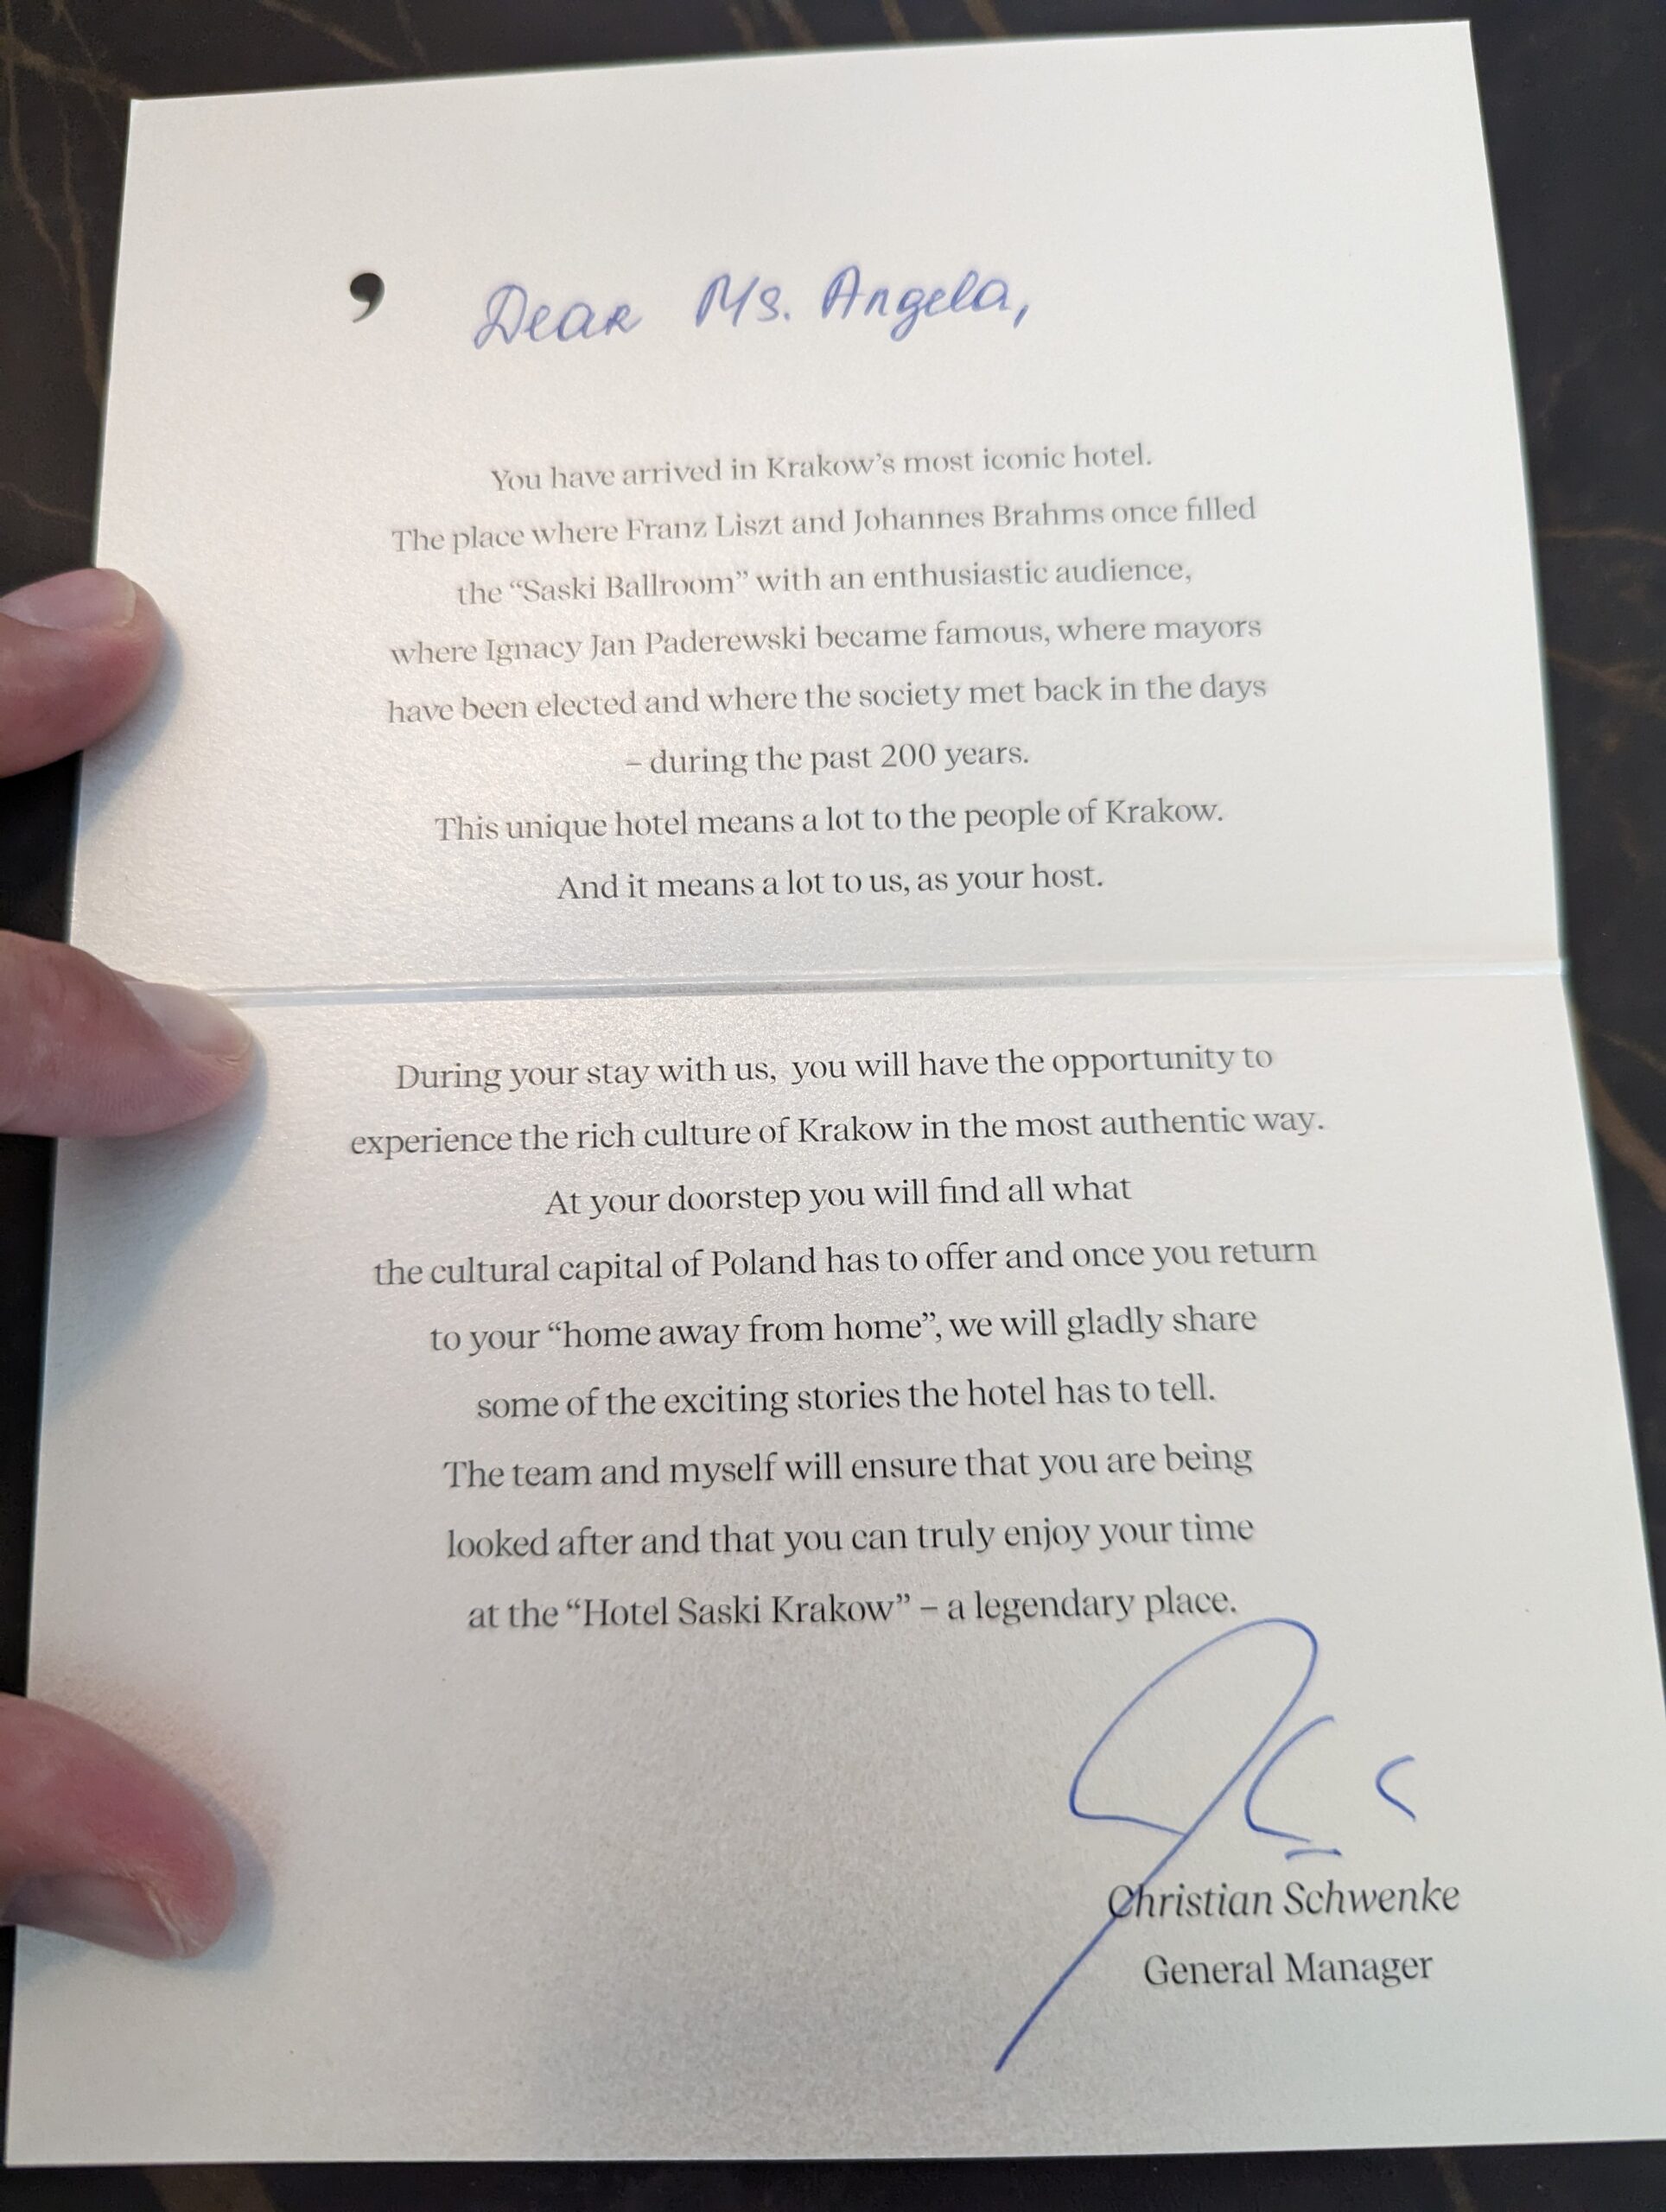 ’ Dear Ms. Angela,
You have arrived in Krakow’s most iconic hotel.
The place where Franz Liszt and Johannes Brahms once filled
the “Saski Ballroom” with an enthusiastic audience,
where Ignacy Jan Paderewski became famous, where mayors
have been elected and where the society met back in the days
– during the past 200 years.
This unique hotel means a lot to the people of Krakow.
And it means a lot to us, as your host.
During your stay with us, you will have the opportunity to
experience the rich culture of Krakow in the most authentic way.
At your doorstep you will find all what
the cultural capital of Poland has to offer and once you return
to your “home away from home”, we will gladly share
some of the exciting stories the hotel has to tell.
The team and myself will ensure that you are being
looked after and that you can truly enjoy your time
at the “Hotel Saski Krakow” – a legendary place.
Christian Schwenke
General Manager